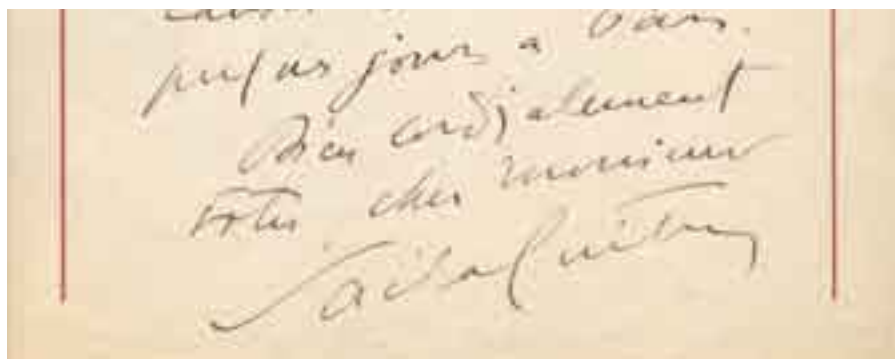 jours à Paris.
Bien cordialement
votre cher monsieur
Sacha Guitry